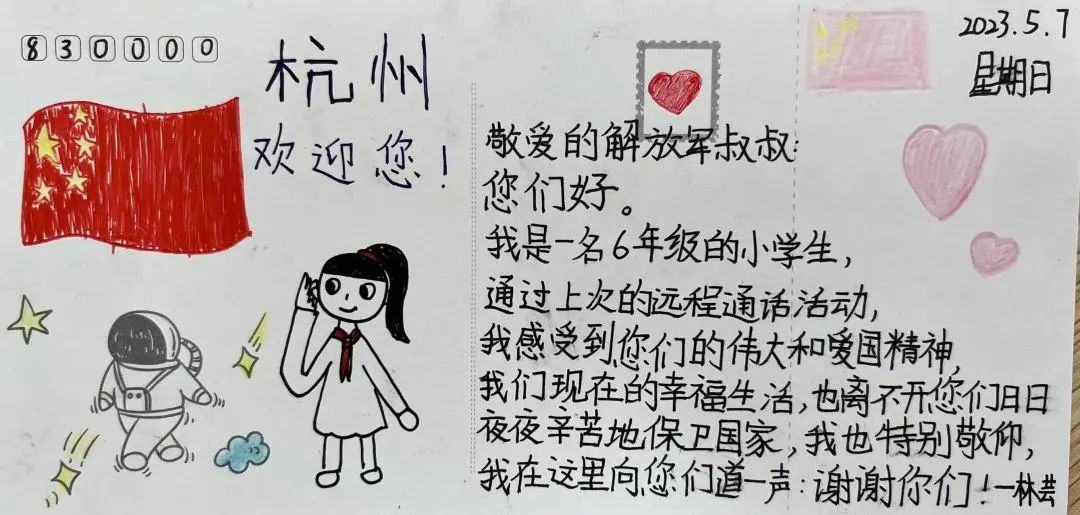 830000
杭州
欢迎您!
2023.5.7
星期日
敬爱的解放军叔叔:
您们好。
我是一名6年级的小学生,
通过上次的远程通话活动,
我感受到您们的伟大和爱国精神,
我们现在的幸福生活,也离不开您们日日
夜夜辛苦地保卫国家,我也特别敬仰,
我在这里向您们道一声:谢谢你们!一林芸